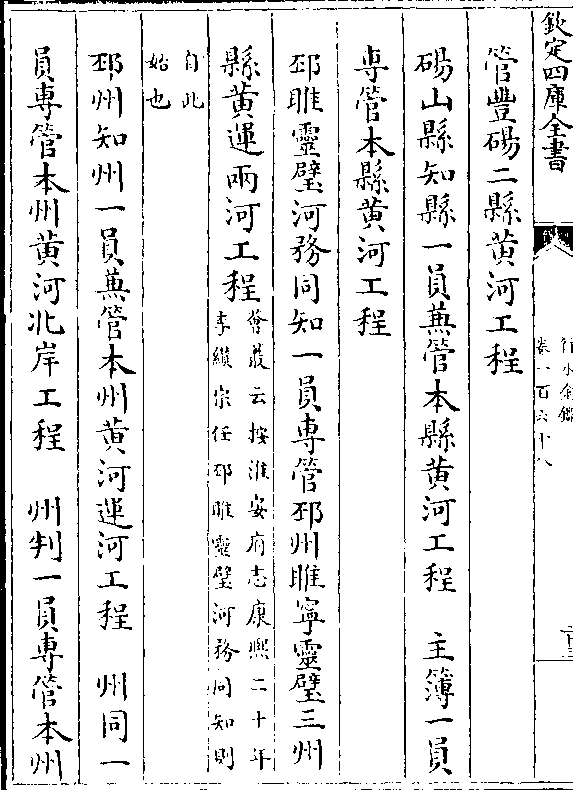 欽定四庫全書
行水金鑑
卷一百六十八
管豐碭二縣黄河工程
碭山縣知縣一員兼管本縣黄河工程　主簿一員
専管本縣黄河工程
邳睢靈璧河務同知一員専管邳州睢寧靈璧三州
縣黄運兩河工程
薈蕞云按淮安府志康熙二十年
李纘宗任邳睢靈璧河務同知則
自此
始也
邳州知州一員兼管本州黄河運河工程　州同一
員専管本州黄河北岸工程　州判一員専管本州